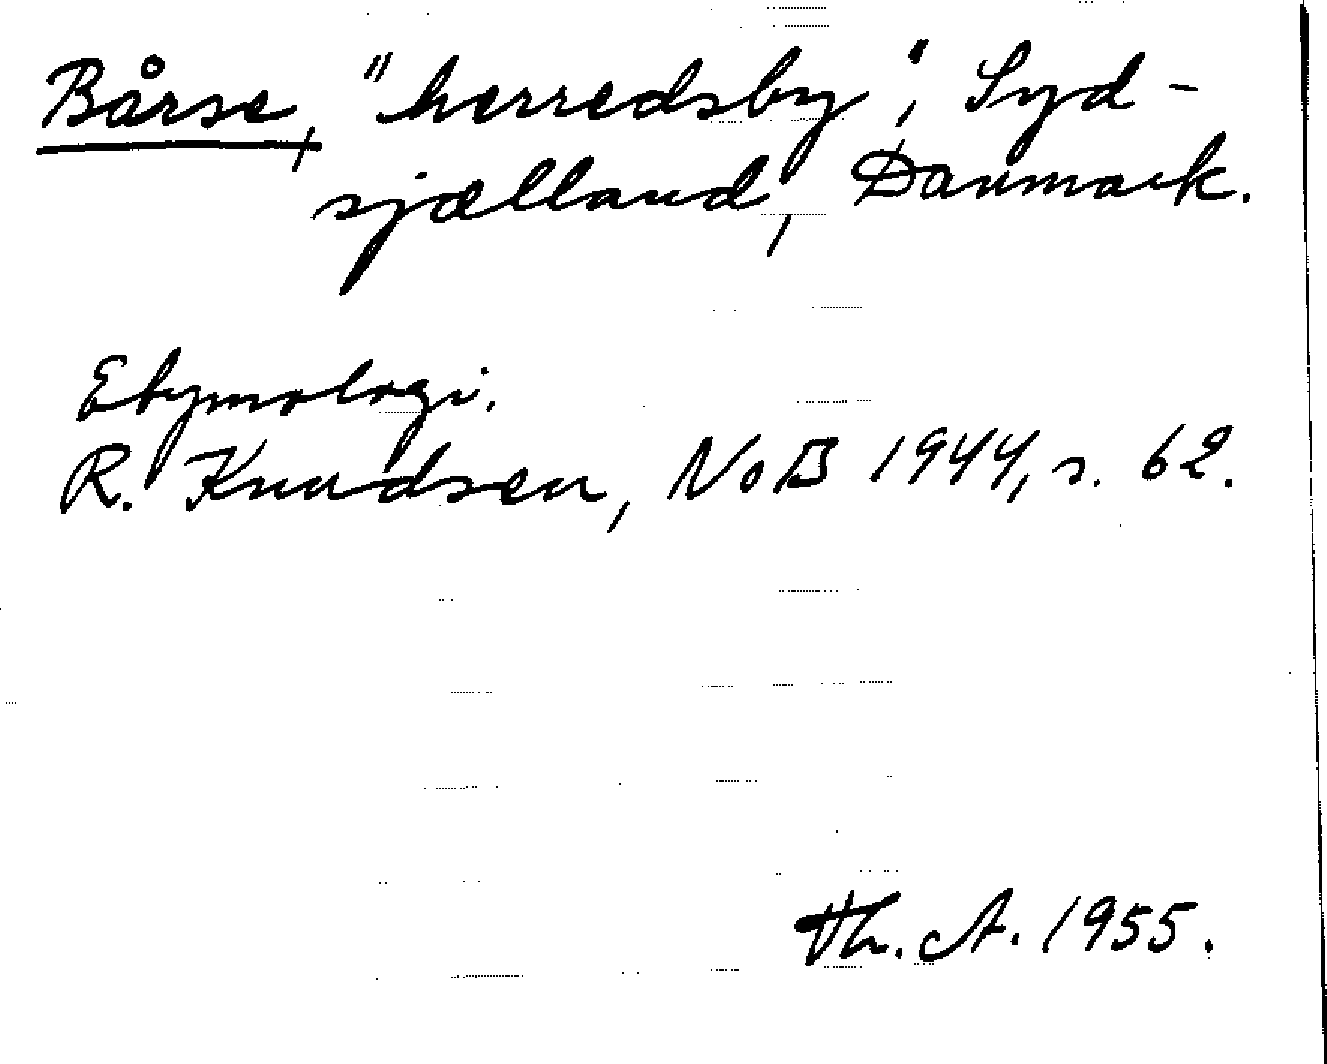 Bårse, "herredsby", Syd-
sjælland, Danmark.
Etymologi.
R. Knudsen, NoB 1944, s. 62.
Th. A. 1955.